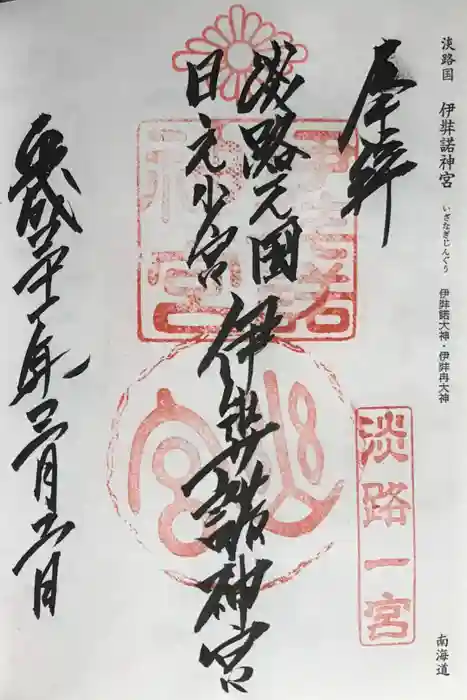 淡路国　伊弉諾神宮　いざなぎじんぐう　伊弉諾大神・伊弉冉大神
南海道
奉拝
淡路元国
日元少宮
伊弉諾神宮
平成三十一年三月 日
伊弉諾神宮
淡路一宮